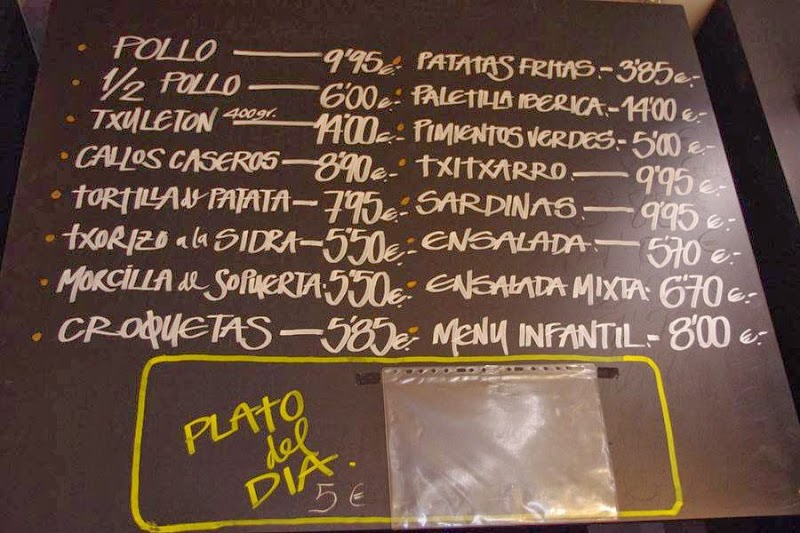 POLLO — 9'95 €.-
1/2 POLLO — 6'00 €.-
TXULETON 400gr. — 14'00 €.-
CALLOS CASEROS — 8'90 €.-
TORTILLA de PATATA — 7'95 €.-
TXORIZO a la SIDRA — 5'50 €.-
MORCILLA de SOPUERTA: 5'50 €.-
CROQUETAS — 5'85 €.-
PATATAS FRITAS.- 3'85 €.-
PALETILLA IBERICA.- 14'00 €.-
PIMIENTOS VERDES.- 5'00 €.-
TXITXARRO.— 9'95 €.-
SARDINAS.— 9'95 €.-
ENSALADA.— 5'70 €.-
ENSALADA MIXTA: 6'70 €.-
MENU INFANTIL.- 8'00 €.-
PLATO
del
DIA.
5 €